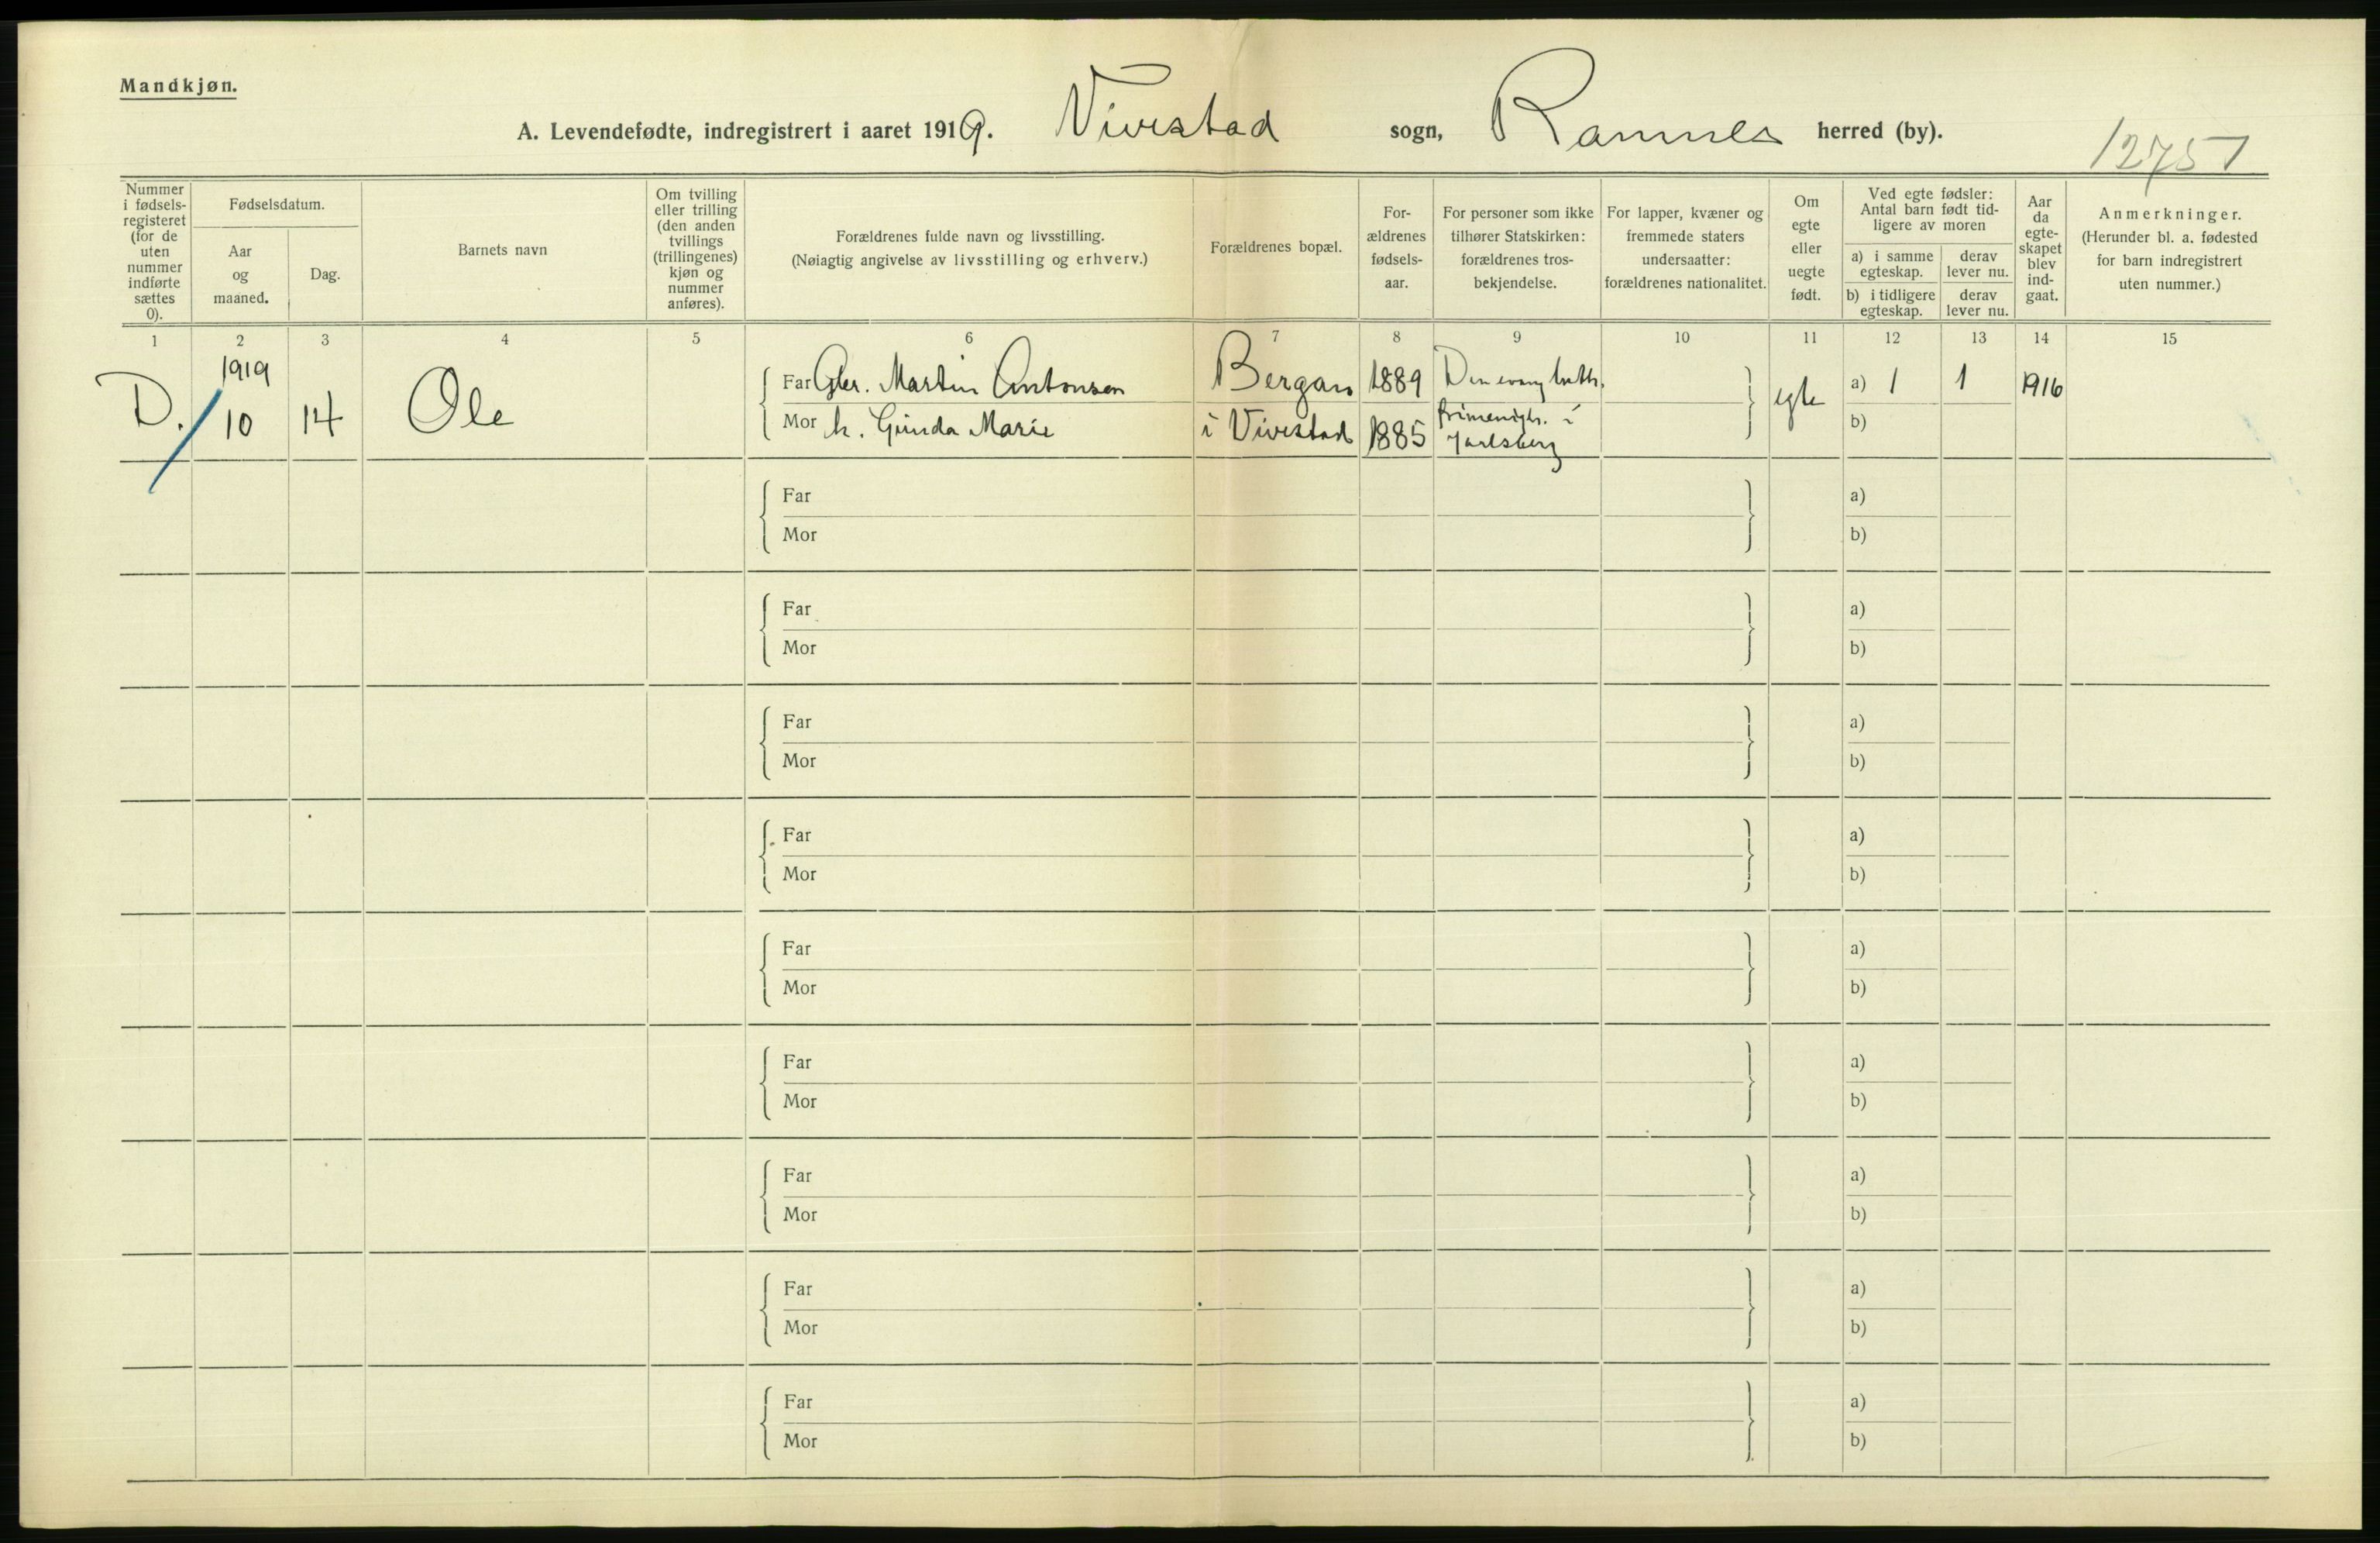 Mandkjøn.
A. Levendefødte, indregistrert i aaret 1919. Vivestad sogn, Ramnes herred (by).
12757
Nummer i fødselsregisteret (for de uten nummer indførte sættes 0).
Fødselsdatum.
Aar og maaned.
Dag.
Barnets navn
Om tvilling eller trilling (den anden tvillings (trillingenes) kjøn og nummer anføres).
Forældrenes fulde navn og livsstilling.
(Nøiagtig angivelse av livsstilling og erhverv.)
Forældrenes bopæl.
For-ældrenes fødsels-aar.
For personer som ikke tilhører Statskirken: forældrenes tros-bekjendelse.
For lapper, kvæner og fremmede staters undersaatter: forældrenes nationalitet.
Om egte eller uegte født.
Ved egte fødsler: Antal barn født tid-ligere av moren
a) i samme egteskap.
derav lever nu.
b) i tidligere egteskap.
derav lever nu.
Aar da egte-skapet blev ind-gaat.
Anmerkninger.
(Herunder bl. a. fødested for barn indregistrert uten nummer.)
1 2 3 4 5 6 7 8 9 10 11 12 13 14 15
D. 1919 10 14 Ole
Far Gbr. Martin Antonsen Bergan 1889 Den evang luth. egte a) 1 1 1916
Mor h. Gunda Marie i Vivestad 1885 frimenigh. i Jarlsberg b)
Far a)
Mor b)
Far a)
Mor b)
Far a)
Mor b)
Far a)
Mor b)
Far a)
Mor b)
Far a)
Mor b)
Far a)
Mor b)
Far a)
Mor b)
Far a)
Mor b)